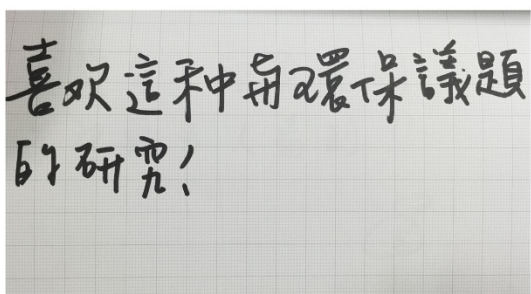 喜欢這种與環保議題
的研究!